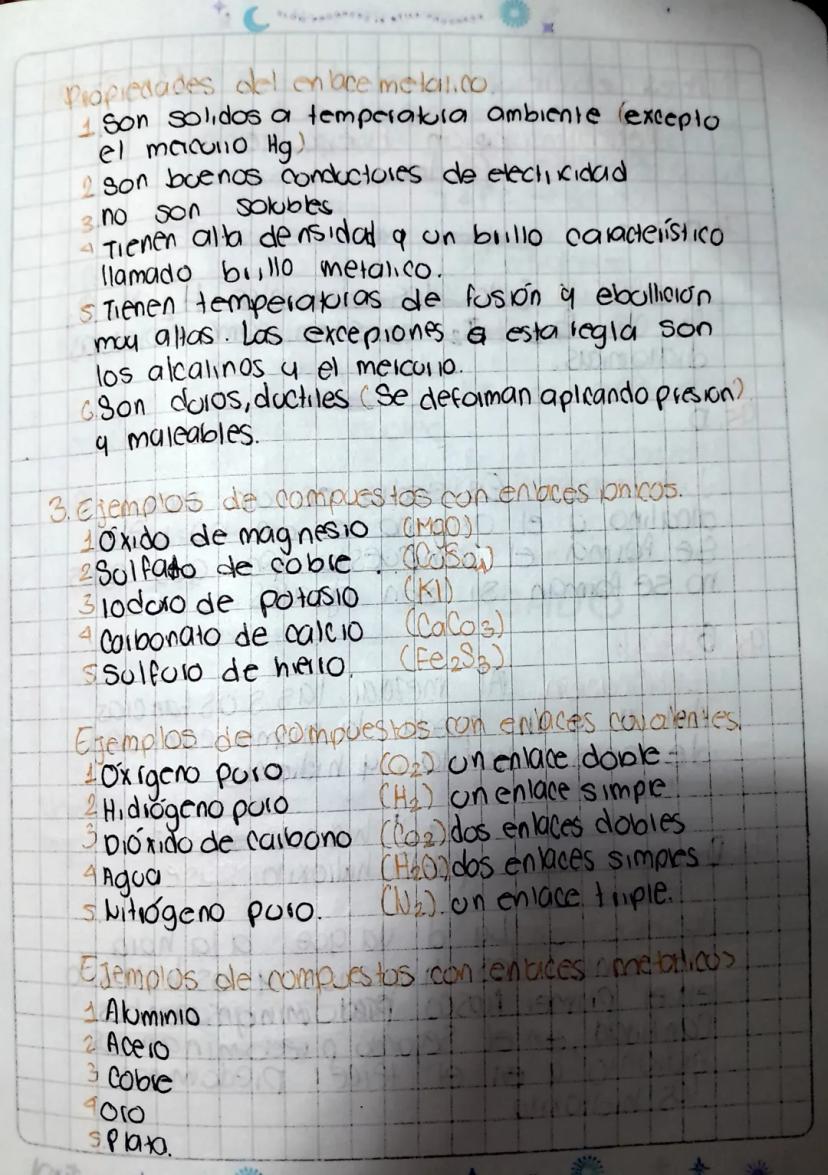 Propiedades del enlace metalico.
1 Son solidos a temperatura ambiente (excepto
el mercurio Hg)
2 Son buenos conductores de electricidad
3 no son solubles
4 Tienen alta densidad y un brillo característico
llamado brillo metalico.
5 Tienen temperaturas de fusión y ebullición
muy altas. Las excepciones a esta regla son
los alcalinos y el mercurio.
6 Son duros, ductiles (Se deforman aplicando presion)
y maleables.
3. Ejemplos de compuestos con enlaces ionicos.
1 Óxido de magnesio (MgO)
2 Sulfato de cobre. (CuSO4)
3 Ioduro de potasio (KI)
4 Carbonato de calcio (CaCO3)
5 Sulfuro de hierro. (Fe2S3)
Ejemplos de compuestos con enlaces covalentes.
1 Óxigeno puro (O2) un enlace doble
2 Hidrógeno puro (H2) un enlace simple
3 Dióxido de carbono (CO2) dos enlaces dobles
4 Agua (H2O) dos enlaces simples
5 Nitrógeno puro. (N2). un enlace triple.
Ejemplos de compuestos con enlaces metalicos
1 Aluminio
2 Acero
3 Cobre
4 Oro
5 Plata.